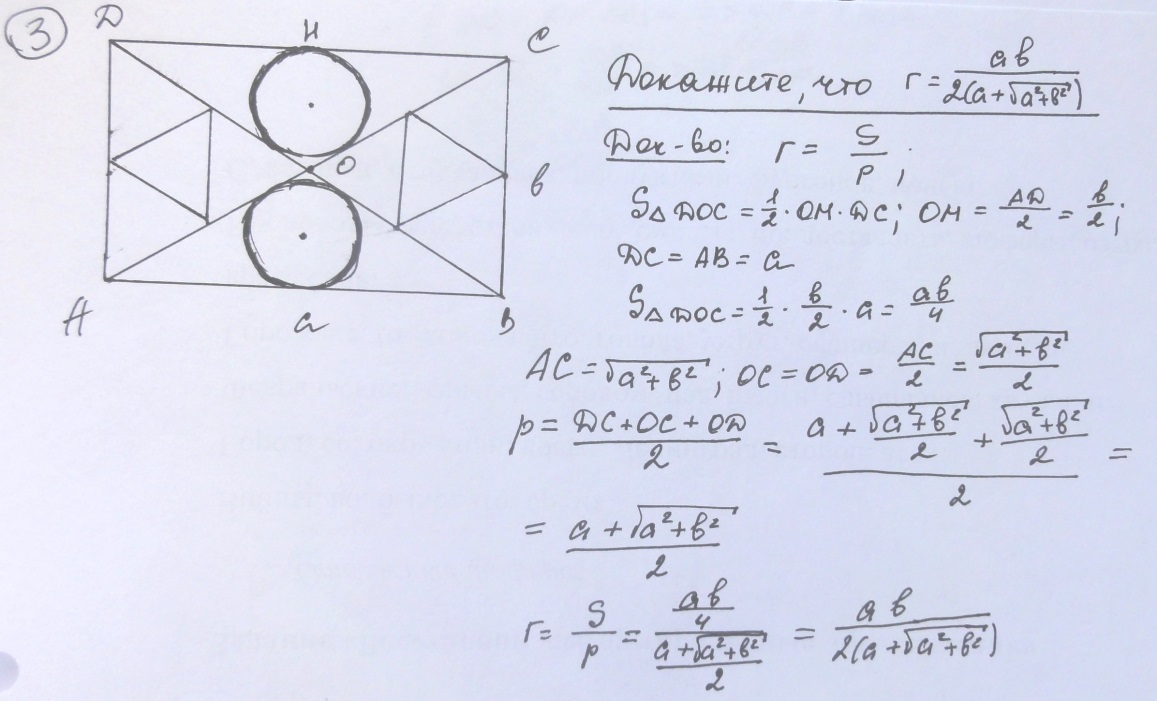 3
D H C
O
b
A a B
Докажите, что r = ab / 2(a+√a²+b²)
Док-во: r = S / p ;
S△DOC = 1/2 · OH · DC; OH = AD/2 = b/2;
DC = AB = a
S△DOC = 1/2 · b/2 · a = ab/4
AC = √a²+b²; OC = OD = AC/2 = √a²+b² / 2
p = DC+OC+OD / 2 = a + √a²+b² / 2 + √a²+b² / 2 / 2 =
= a + √a²+b² / 2
r = S/p = ab/4 / a+√a²+b² / 2 = ab / 2(a+√a²+b²)